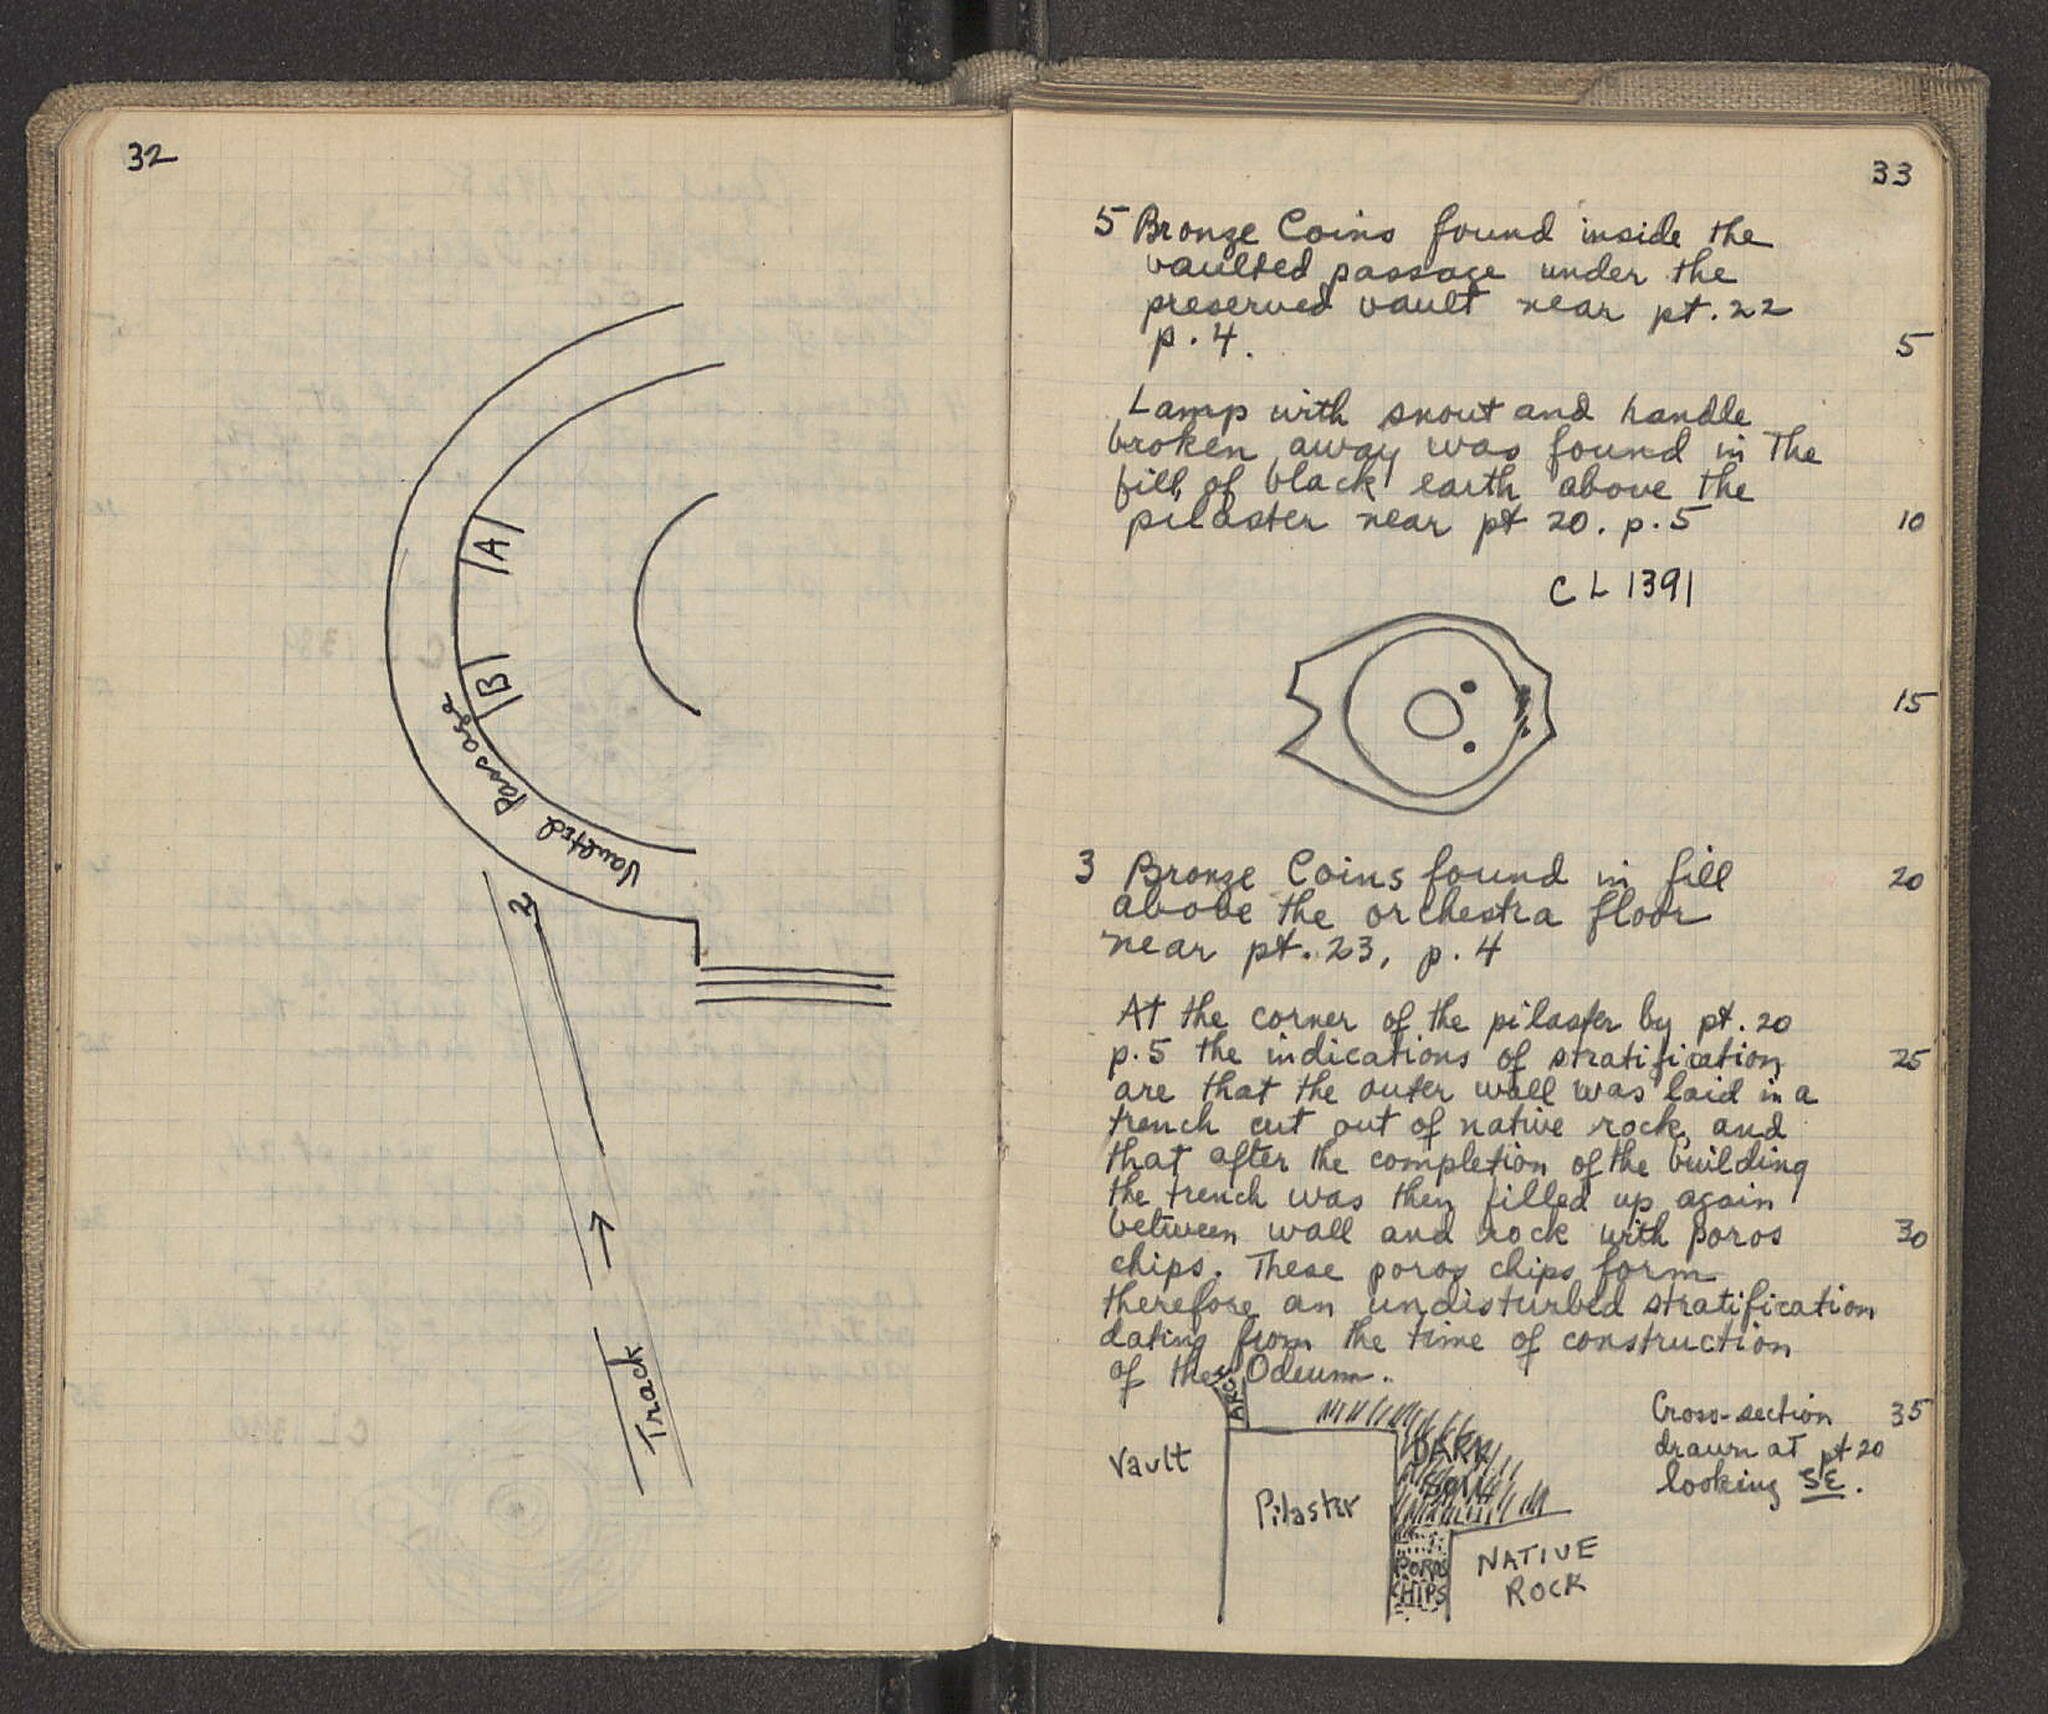 32
A
B
Vaulted Passage
2
Track
33
5 Bronze Coins found inside the
vaulted passage under the
preserved vault near pt. 22
p. 4.
5
Lamp with snout and handle
broken away was found in the
fill of black earth above the
pilaster near pt 20. p. 5
10
CL 1391
15
3 Bronze Coins found in fill
20
above the orchestra floor
near pt. 23, p. 4
At the corner of the pilaster by pt. 20
p. 5 the indications of stratification
25
are that the outer wall was laid in a
trench cut out of native rock, and
that after the completion of the building
the trench was then filled up again
between wall and rock with poros
30
chips. These poros chips form
therefore an undisturbed stratification
dating from the time of construction
of the Odeum.
Cross-section
35
drawn at pt 20
looking SE.
Vault
Pilaster
DARK
SOIL
POROS
CHIPS
NATIVE
ROCK